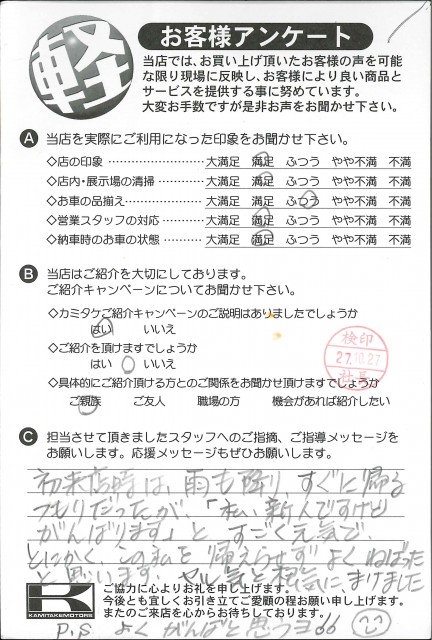 軽
お客様アンケート
当店では、お買い上げ頂いたお客様の声を可能
な限り現場に反映し、お客様により良い商品と
サービスを提供する事に努めています。
大変お手数ですが是非お声をお聞かせ下さい。
A 当店を実際にご利用になった印象をお聞かせ下さい。
◇店の印象 ………………… 大満足 満足 ふつう やや不満 不満
◇店内・展示場の清掃 ………… 大満足 満足 ふつう やや不満 不満
◇お車の品揃え ……………… 大満足 満足 ふつう やや不満 不満
◇営業スタッフの対応 ………… 大満足 満足 ふつう やや不満 不満
◇納車時のお車の状態 ………… 大満足 満足 ふつう やや不満 不満
B 当店はご紹介を大切にしております。
ご紹介キャンペーンについてお聞かせ下さい。
◇カミタケご紹介キャンペーンのご説明はありましたでしょうか
はい いいえ
◇ご紹介を頂けますでしょうか
はい いいえ
◇具体的にご紹介頂ける方とのご関係をお聞かせ頂けますでしょうか
ご親族 ご友人 職場の方 機会があれば紹介したい
検印
27.10.27
社長
C 担当させて頂きましたスタッフへのご指摘、ご指導メッセージを
お願いします。応援メッセージもぜひお願いします。
初来店時は、雨も降り、すぐに帰る
つもりだったが、「私、新人ですけど
がんばります」と、すごく元気で、
とにかく、この私を"帰えらせず"よくねばった
と思います。ヤル気と根気に、まけました
K
KAMITAKEMOTORS
ご協力に心よりお礼を申し上げます。
今後とも宜しくお引き立てご愛顧の程お願い申し上げます。
またのご来店を心からお待ちしております。
P.S よくがんばと思うヨ